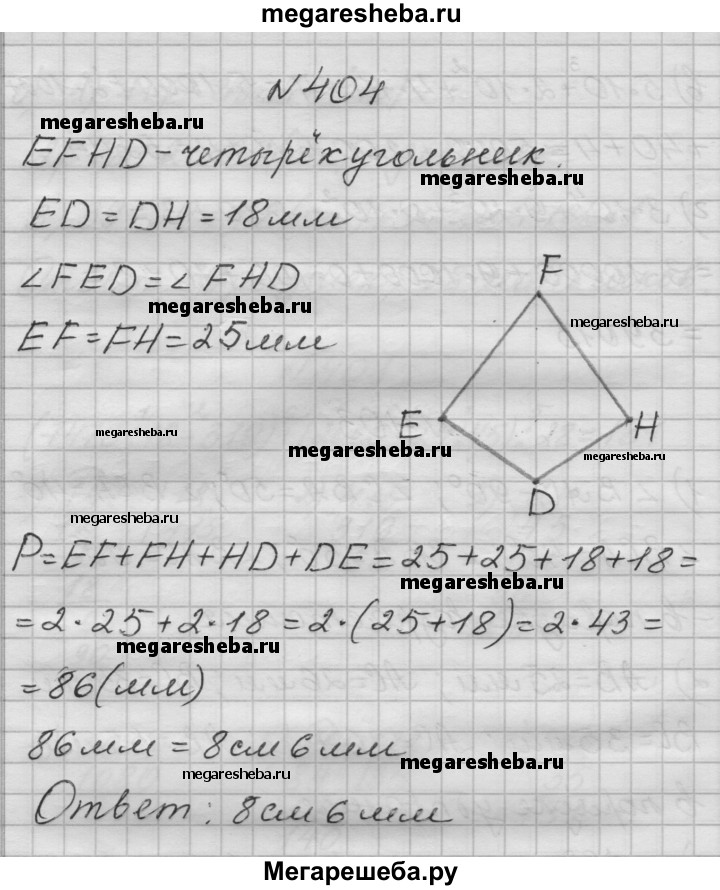 megaresheba.ru
№404
megaresheba.ru
EFHD – четырёхугольник.
megaresheba.ru
ED = DH = 18 мм
∠FED = ∠FHD
megaresheba.ru
EF = FH = 25 мм
F
megaresheba.ru
E
H
megaresheba.ru
megaresheba.ru
megaresheba.ru
D
megaresheba.ru
P = EF + FH + HD + DE = 25 + 25 + 18 + 18 =
megaresheba.ru
= 2 · 25 + 2 · 18 = 2 · (25 + 18) = 2 · 43 =
megaresheba.ru
= 86 (мм)
86 мм = 8 см 6 мм
megaresheba.ru
megaresheba.ru
Ответ: 8 см 6 мм
Мегарешеба.ру